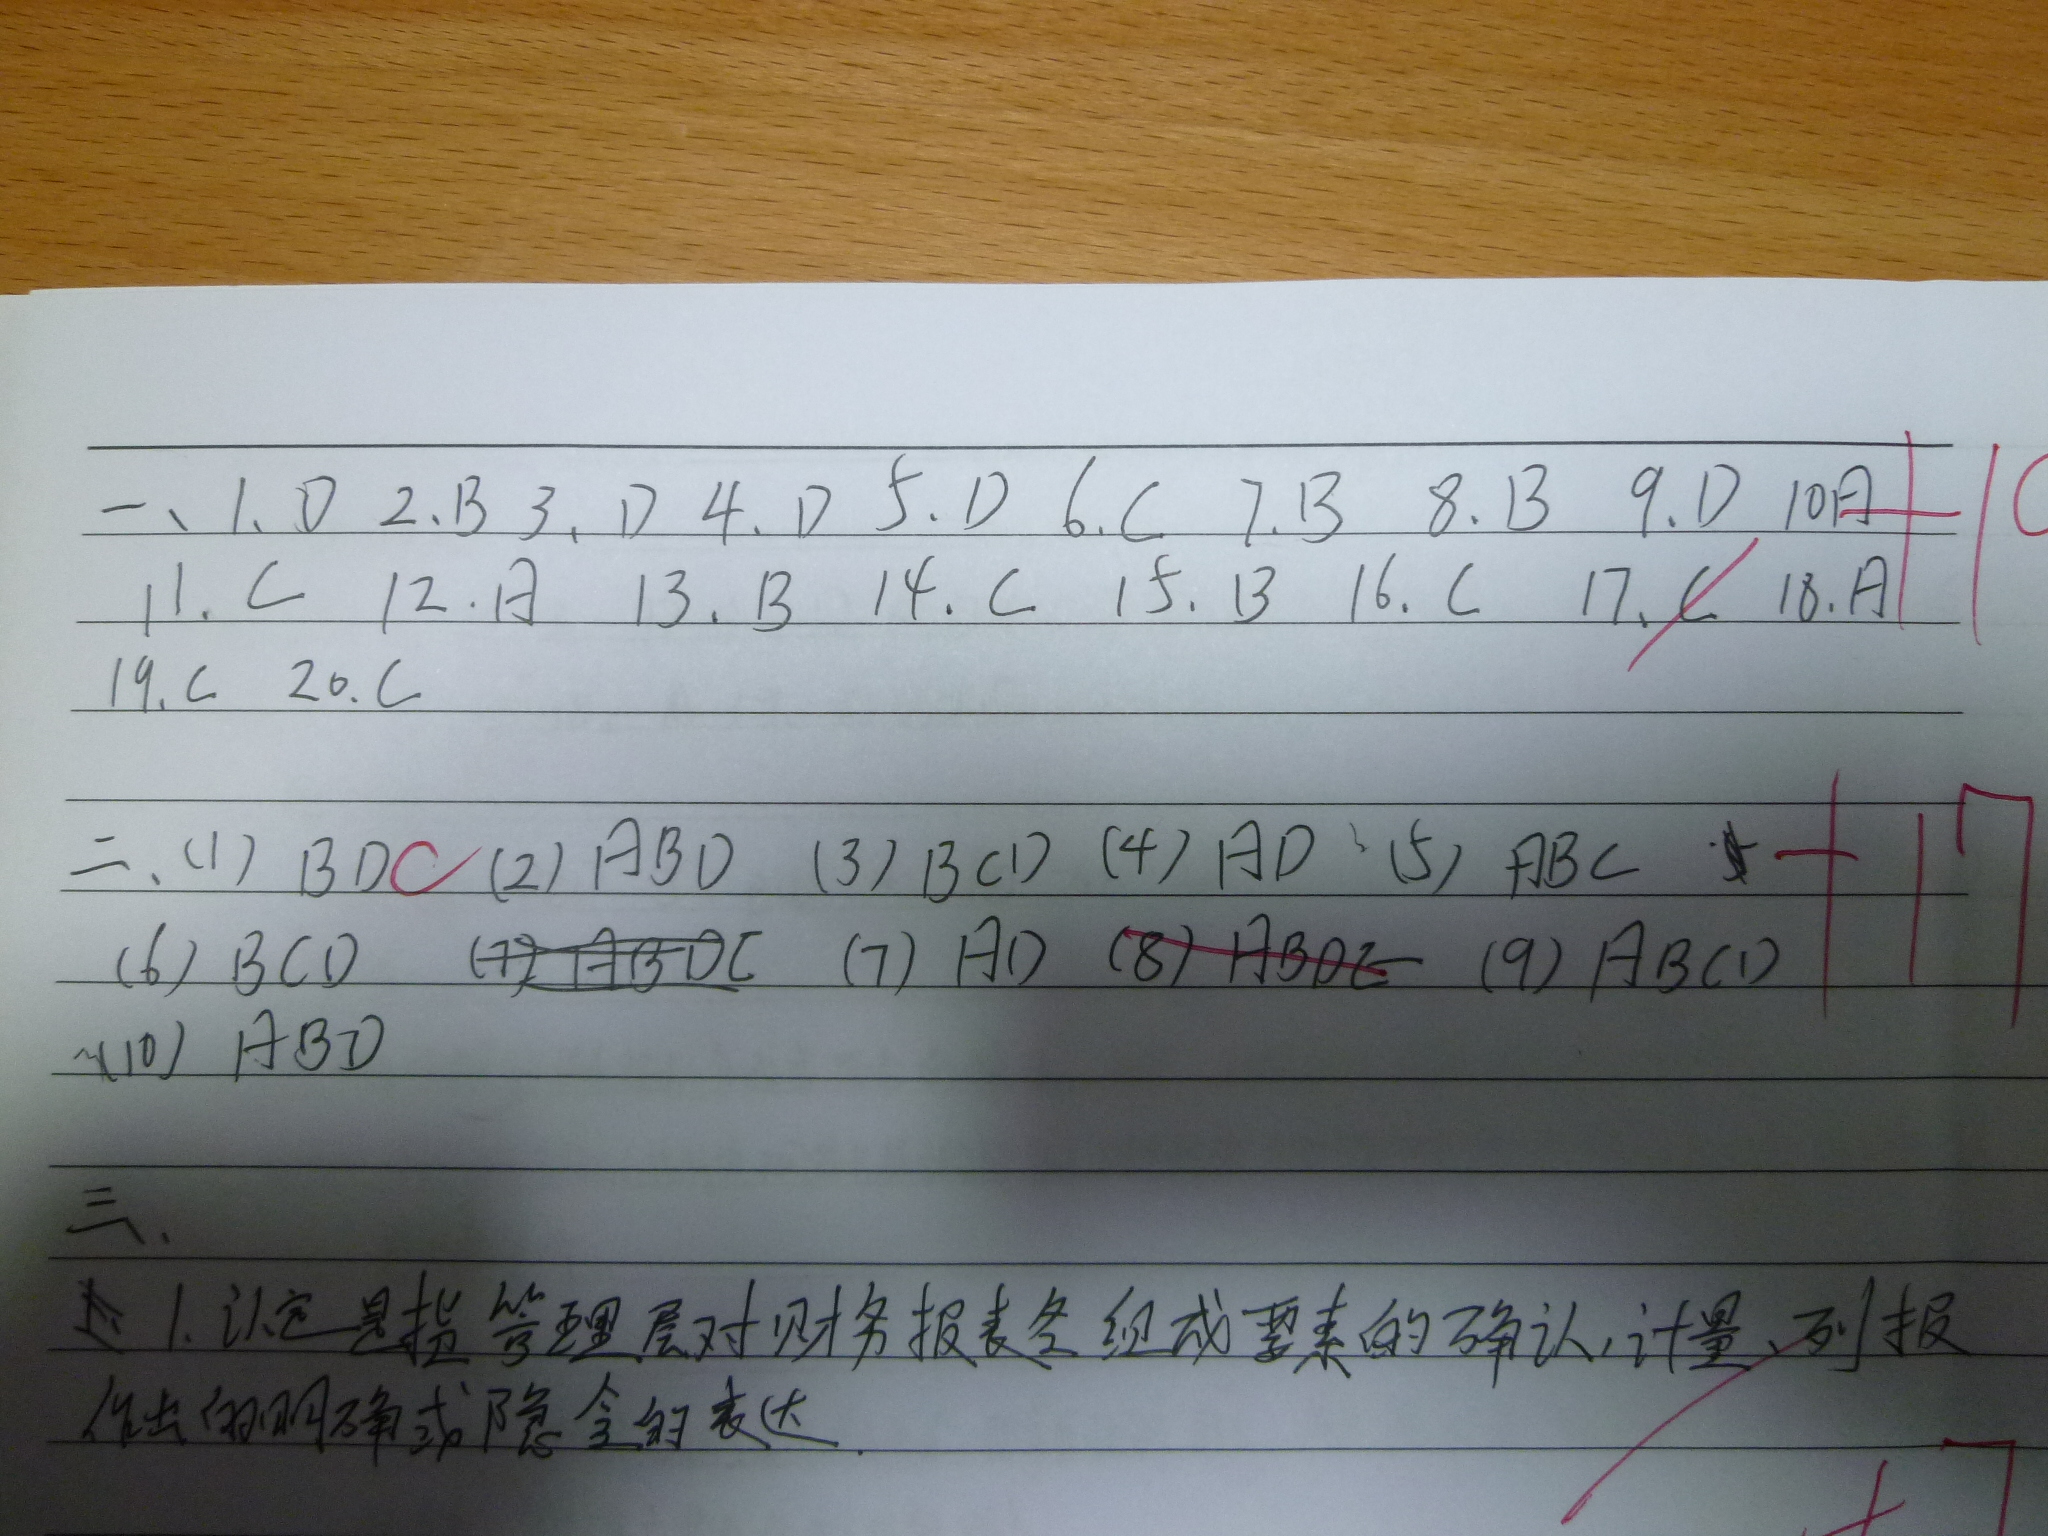 一、1.D 2.B 3.D 4.D 5.D 6.C 7.B 8.B 9.D 10A
11.C 12.A 13.B 14.C 15.B 16.C 17.C 18.A
19.C 20.C
二、(1) BDC (2) ABD (3) BCD (4) AD (5) ABC +17
(6) BCD (7) ABDC (7) AD (8) ABDC (9) ABCD
(10) ABD
三.
1.认定是指管理层对财务报表各组成要素的确认、计量、列报
作出的明确或隐含的表达.